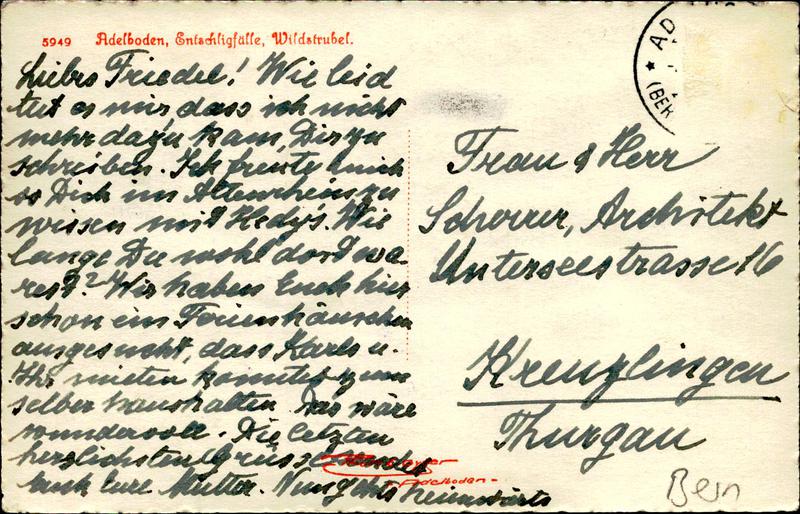 5949 Adelboden, Entschligfälle, Wildstrubel.
Liebes Friedel! Wie leid
tut es mir dass ich nicht
mehr dazu kam, Dir zu
schreiben. Ich freute mich
so Dich im Altenrhein zu
wissen mit Hedys. Wie
lange Du wohl dort wa-
rest? Wir haben Euch hier
schon ein Ferienhäuschen
ausgesucht, dass Karls u.
Ihr mieten könntet zum
selber haushalten. Das wäre
wundervoll. Die letzten
herzlichsten Grüsse sendet
Euch Eure Mutter. Nun geht's heimwärts
AD
(BER
Frau & Herr
Scherrer, Architekt
Unterseestrasse 16
Kreuzlingen
Thurgau
Adelboden-
Bern